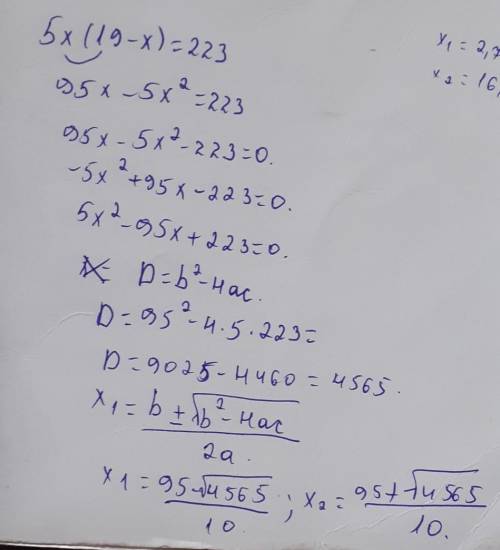 5x(19-x)=223
x₁ = 2,
x₂ = 16,
95x - 5x² = 223
95x - 5x² - 223 = 0.
-5x² + 95x - 223 = 0.
5x² - 95x + 223 = 0.
D = b² - 4ac.
D = 95² - 4·5·223 =
D = 9025 - 4460 = 4565.
x₁ = b ± √b² - 4ac / 2a.
x₁ = 95 - √4565 / 10 ; x₂ = 95 + √4565 / 10.